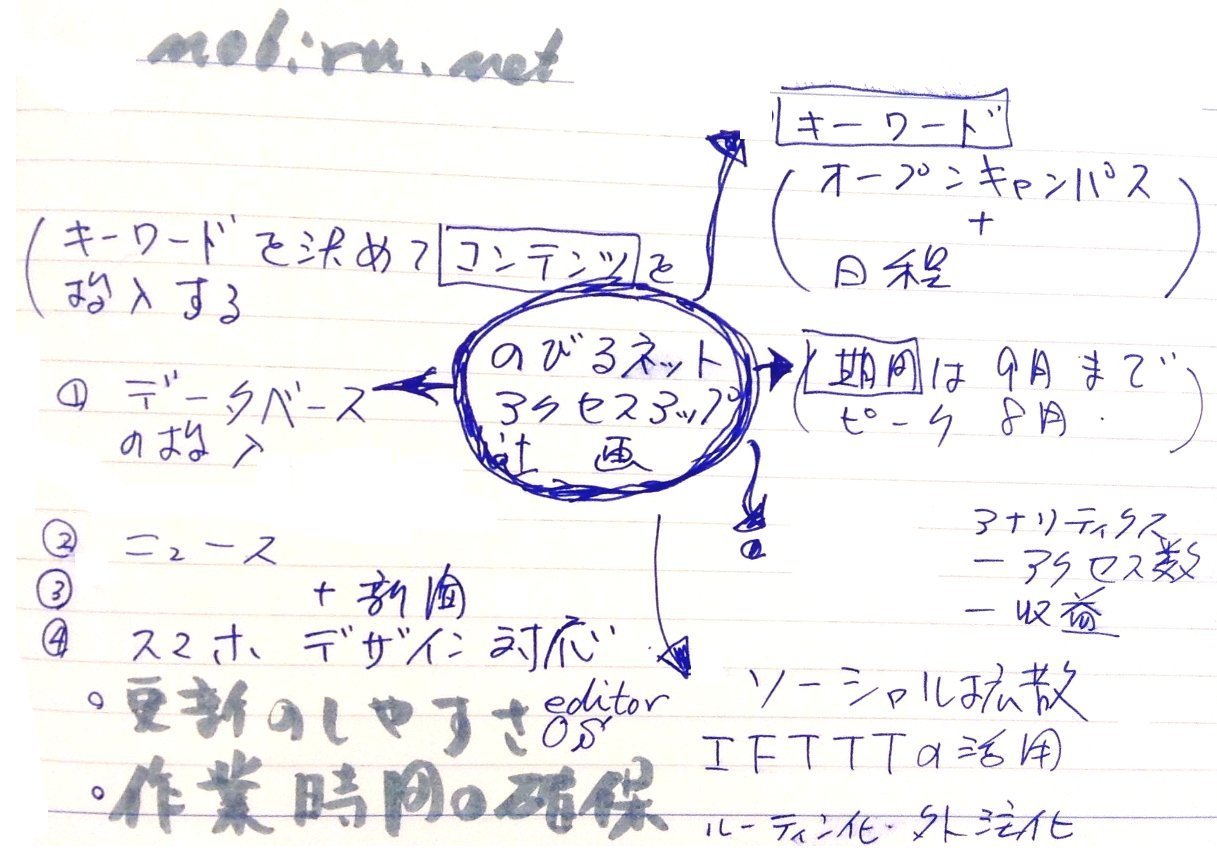 nobiru.net
キーワード
オープンキャンパス
+
日程
キーワードを決めてコンテンツを
投入する
のびるネット
アクセスアップ
計画
期間は9月まで
ピーク 8月
① データベース
の投入
② ニュース
③ + 新聞
④ スマホ デザイン対応
アナリティクス
ー アクセス数
ー 収益
・更新のしやすさ editor
OS
・作業時間の確保
ソーシャル拡散
IFTTTの活用
ルーティン化・外注化